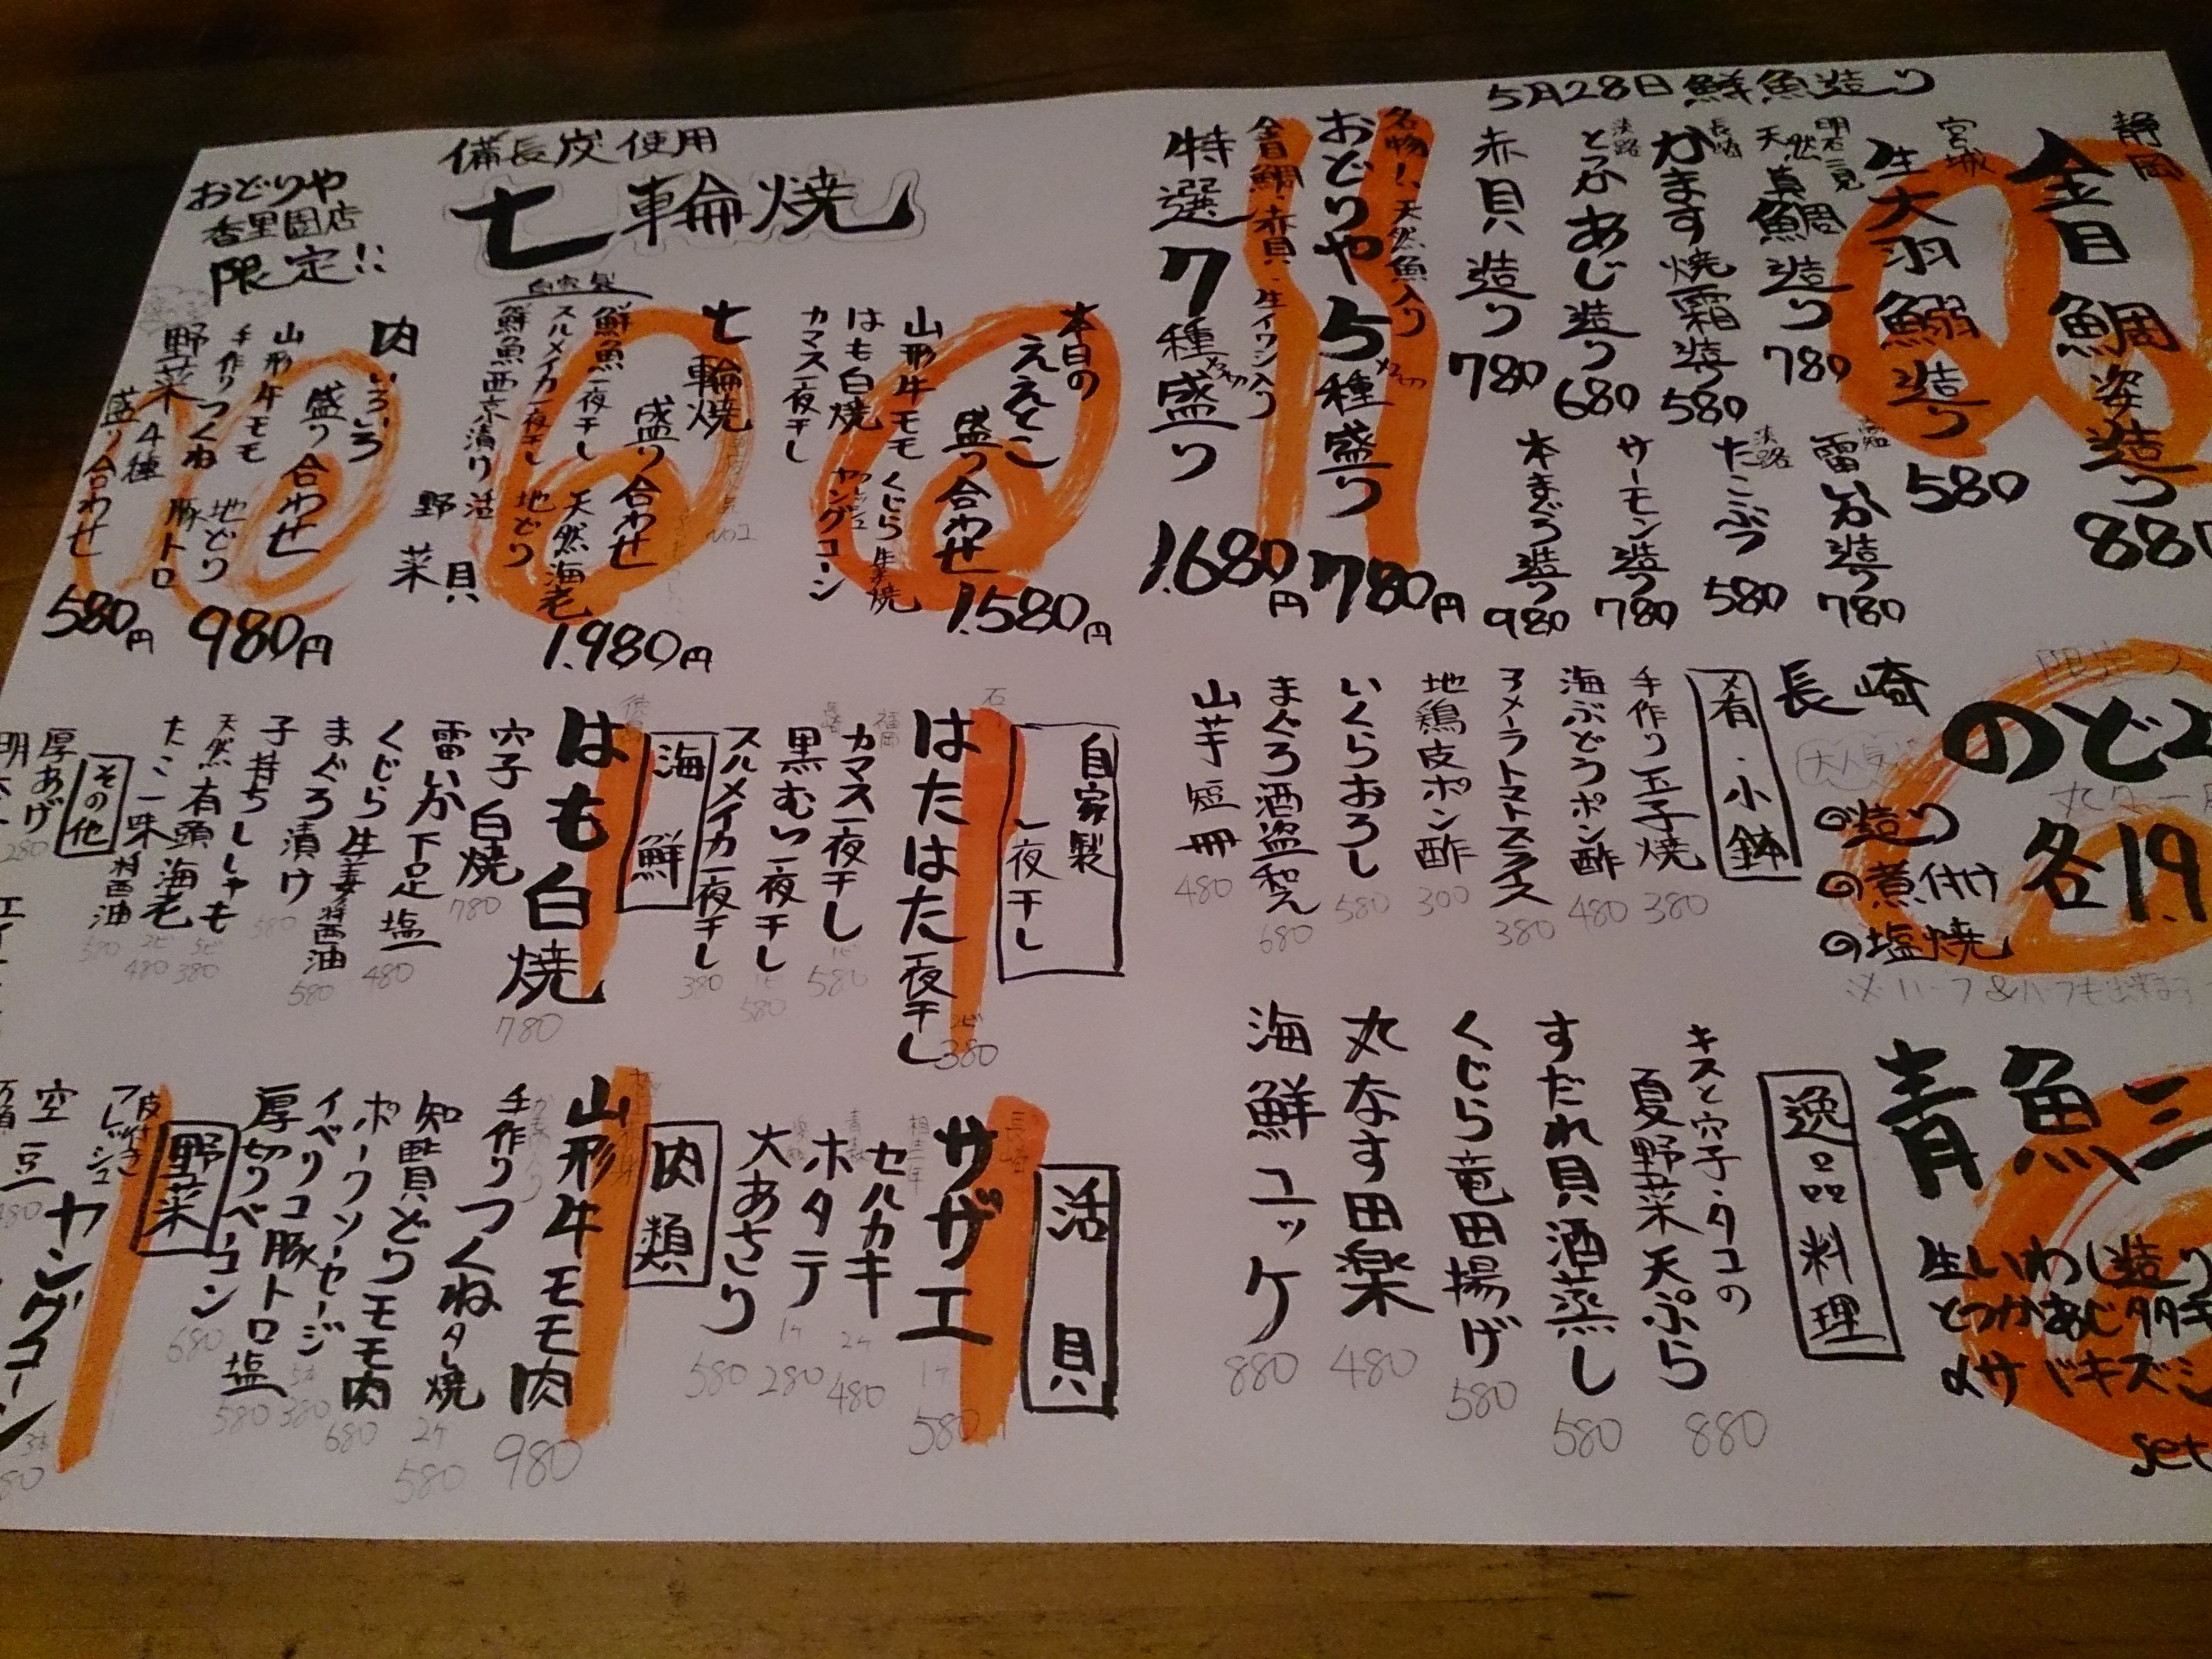 5月28日 鮮魚造り
静岡
金目鯛姿造り
宮城
生大羽鰯造り 580
天然真鯛造り 780
長崎
かます焼霜造り 580
淡路
とつかあじ造り 680
赤貝造り 780
雷いか造り 780
淡路
たこぶつ 580
サーモン造り 780
本まぐろ造り 980
名物!、天然魚入り
おどりや5種盛り 780円
金目鯛、赤貝、生イワシ入り
特選7種盛り 1.680円
長崎
大人気
造り
煮付け
塩焼
※ハーフ&ハーフも出来ます
肴・小鉢
手作り玉子焼 380
海ぶどうポン酢 480
アメーラトマトスライス 380
地鶏皮ポン酢 300
いくらおろし 580
まぐろ酒盗和え 680
山芋短冊 480
生いわし造り
とつかあじタタキ
set
逸品料理
キスと穴子・タコの
夏野菜天ぷら 880
すだれ貝酒蒸し 580
くじら竜田揚げ 580
丸なす田楽 480
海鮮ユッケ 880
備長炭使用
七輪焼
おどりや
香里園店
限定!!
本日の
ええとこ
盛り合わせ 1.580円
山形牛モモ
くじら生姜焼
はも白焼
ヤングコーン
カマス一夜干し
七輪焼
盛り合わせ 1.980円
自家製
鮮魚一夜干し
天然海老
スルメイカ一夜干し
地どり
鮮魚西京漬け
活貝
野菜
肉いろいろ
盛り合わせ 980円
山形牛モモ
地どり
手作りつくね
豚トロ
野菜4種
盛り合わせ 580円
自家製
一夜干し
はたはた一夜干し 2ピ 380
福岡
カマス一夜干し 580
長崎
黒むつ一夜干し 580
スルメイカ一夜干し 380
海鮮
はも白焼 780
穴子白焼 780
雷いか下足塩 480
くじら生姜醤油 580
まぐろ漬け
子持ちししゃも 380
天然有頭海老 2ピ 480
たこ一味醤油
その他
厚あげ 280
活貝
長崎
サザエ 1ケ 580
セルカキ 2ケ 480
ホタテ 1ケ 280
大あさり 580
肉類
山形牛モモ肉 980
手作りつくねタレ焼 2ケ 580
知覧どりモモ肉 680
ポークソーセージ 380
イベリコ豚トロ塩 580
厚切りベーコン 680
野菜
皮付き
フレッシュ
ヤングコーン
空豆